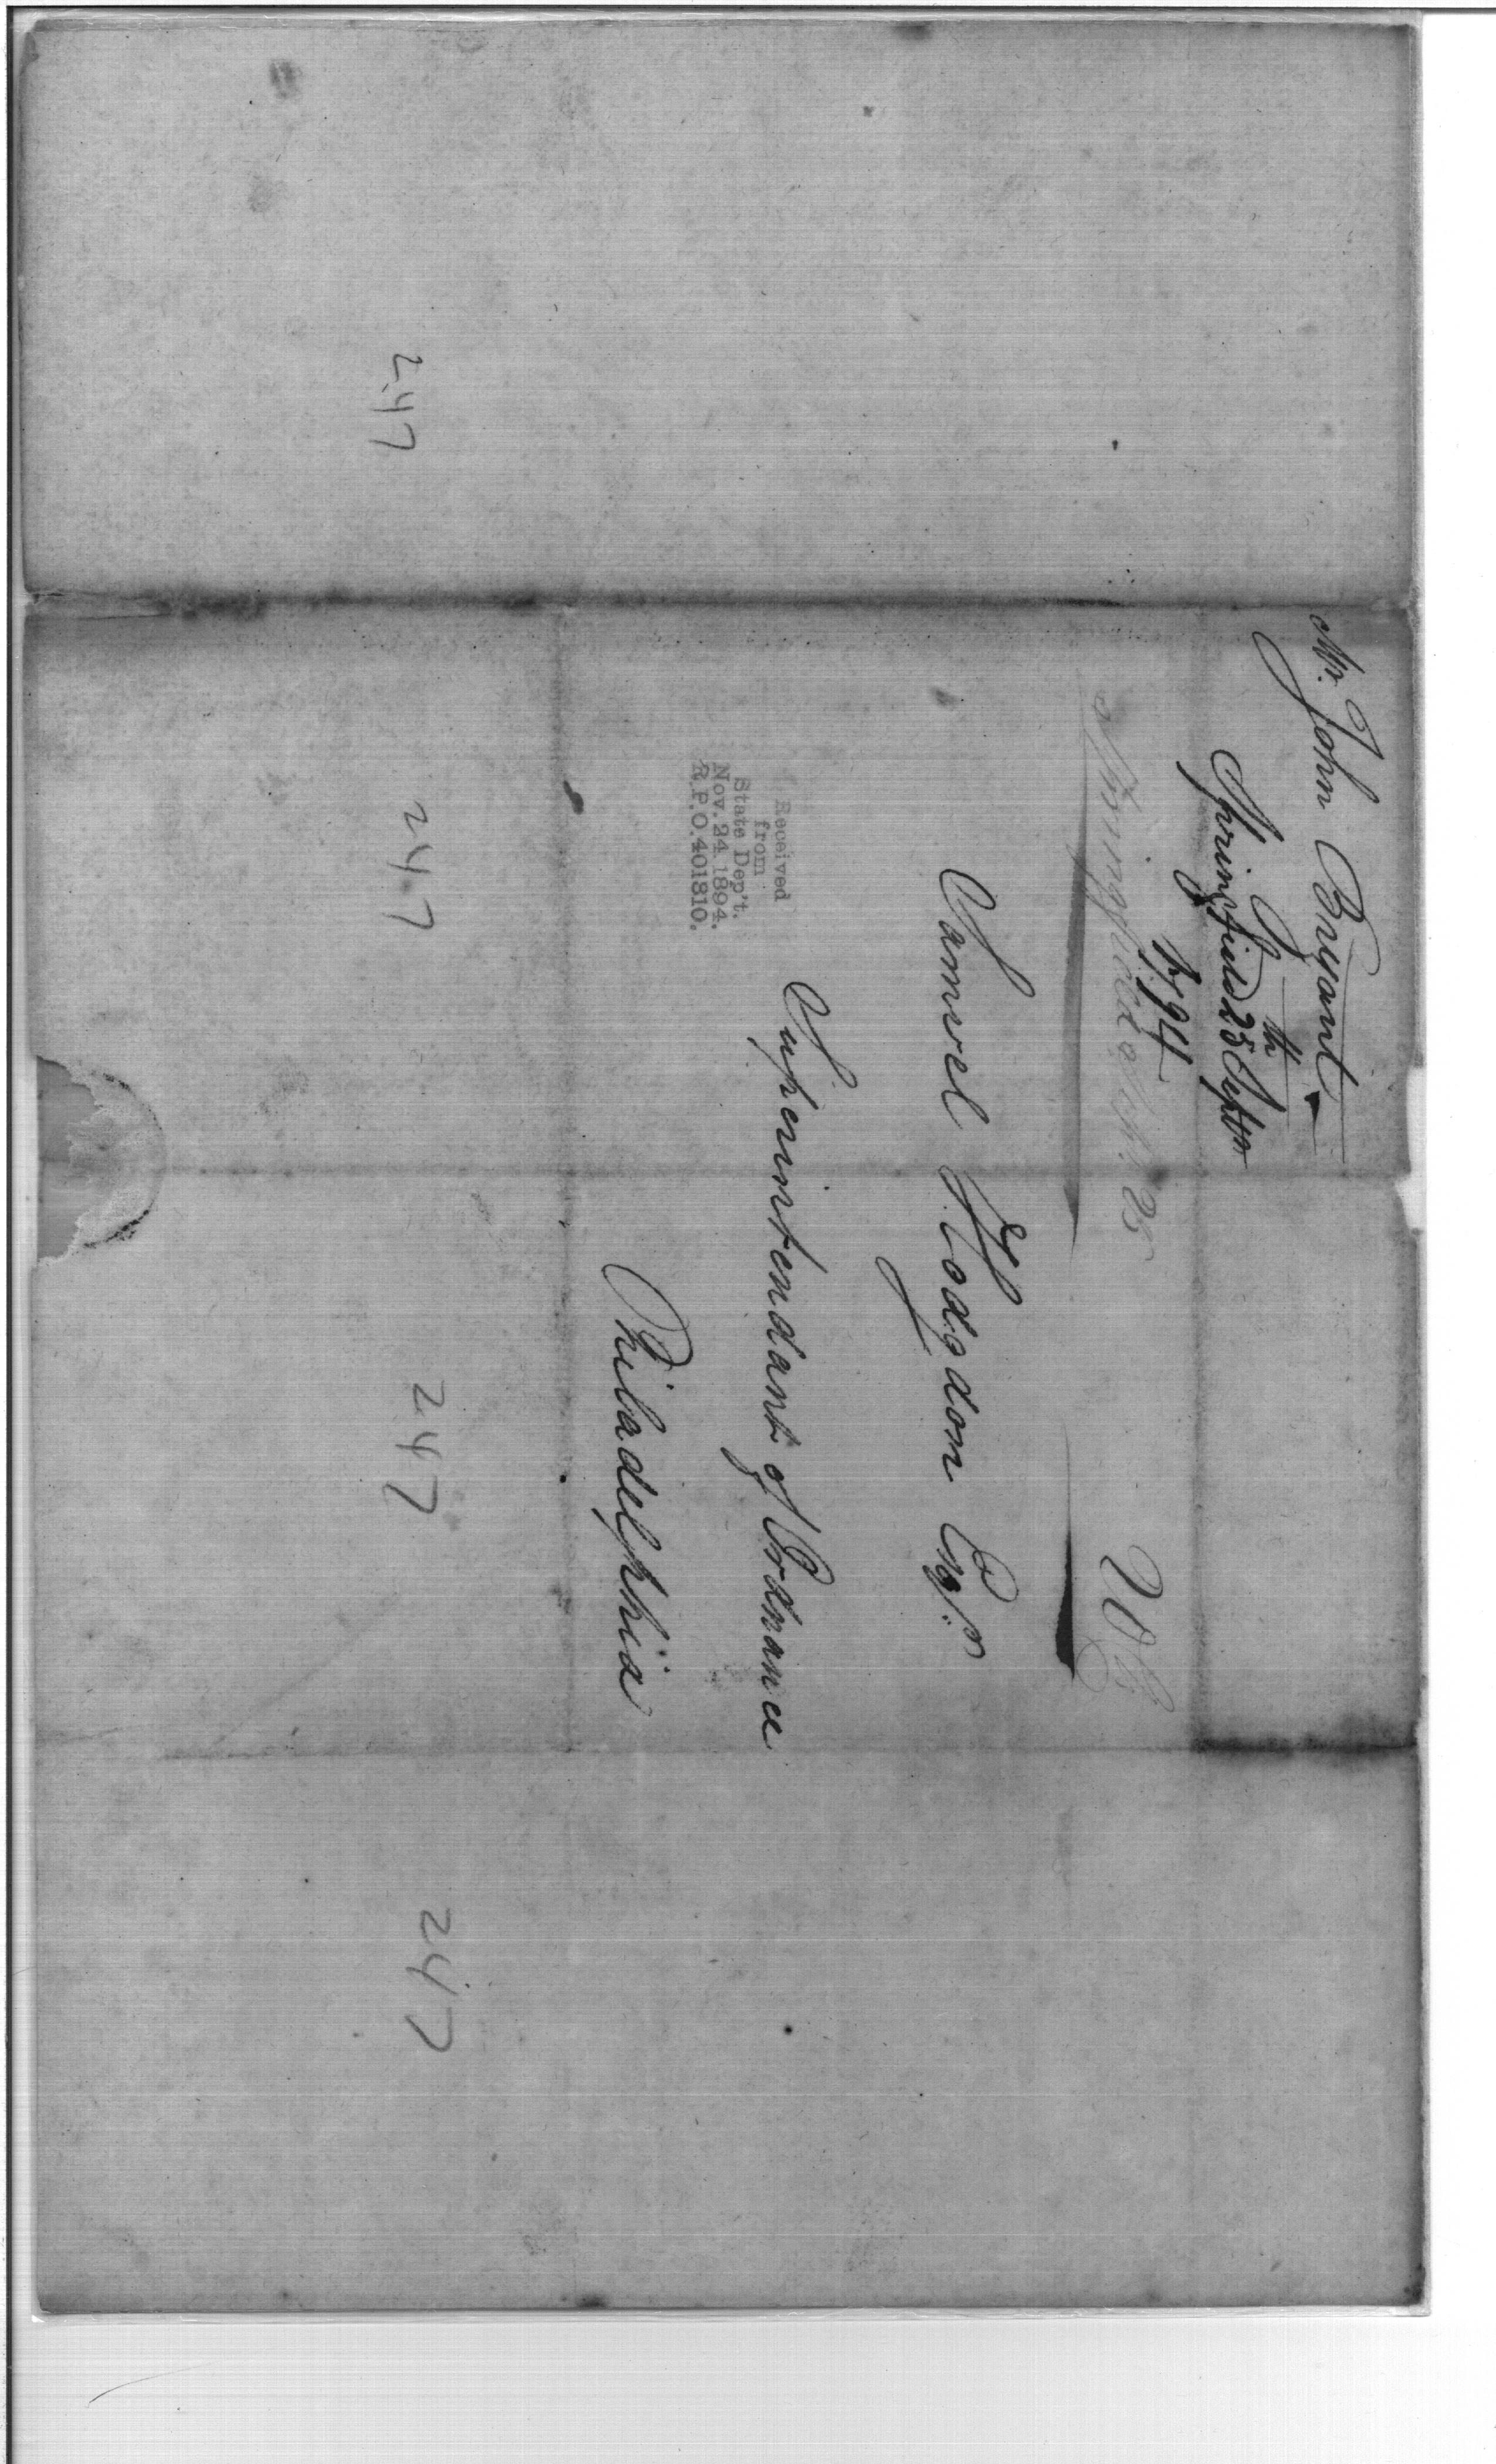 Mr. John Bryant
Springfield 25th Septem
1794
Springfield 25
20
Samuel Hodgdon Esqr.
Superintendant of Ordnance
Philadelphia
Received
from
State Dep't.
Nov. 24 1894.
R.P.O. 401310.
247
247
247
247